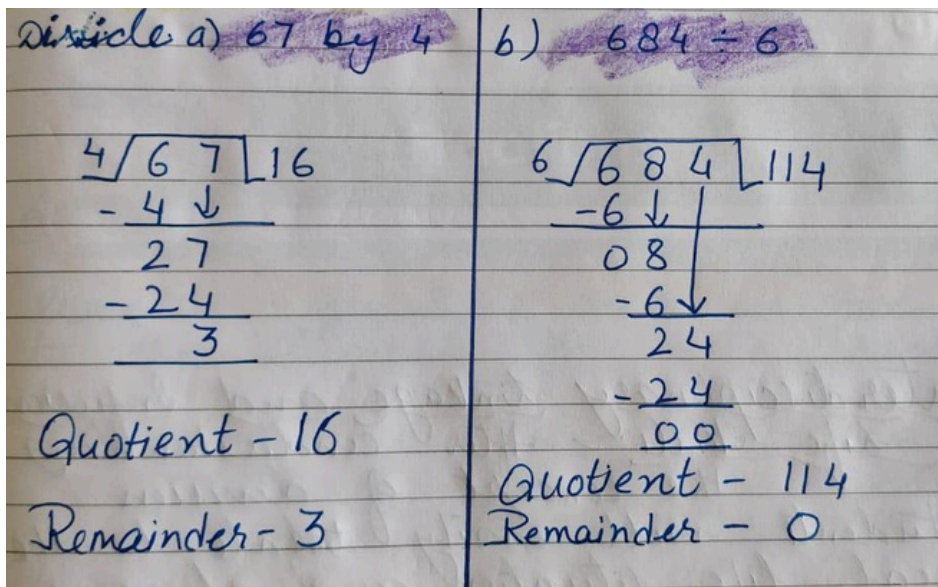 Divide a) 67 by 4
4 67 16
- 4 ↓
27
- 24
3
Quotient - 16
Remainder - 3
b) 684 ÷ 6
6 684 114
- 6 ↓
08
- 6 ↓
24
- 24
00
Quotient - 114
Remainder - 0